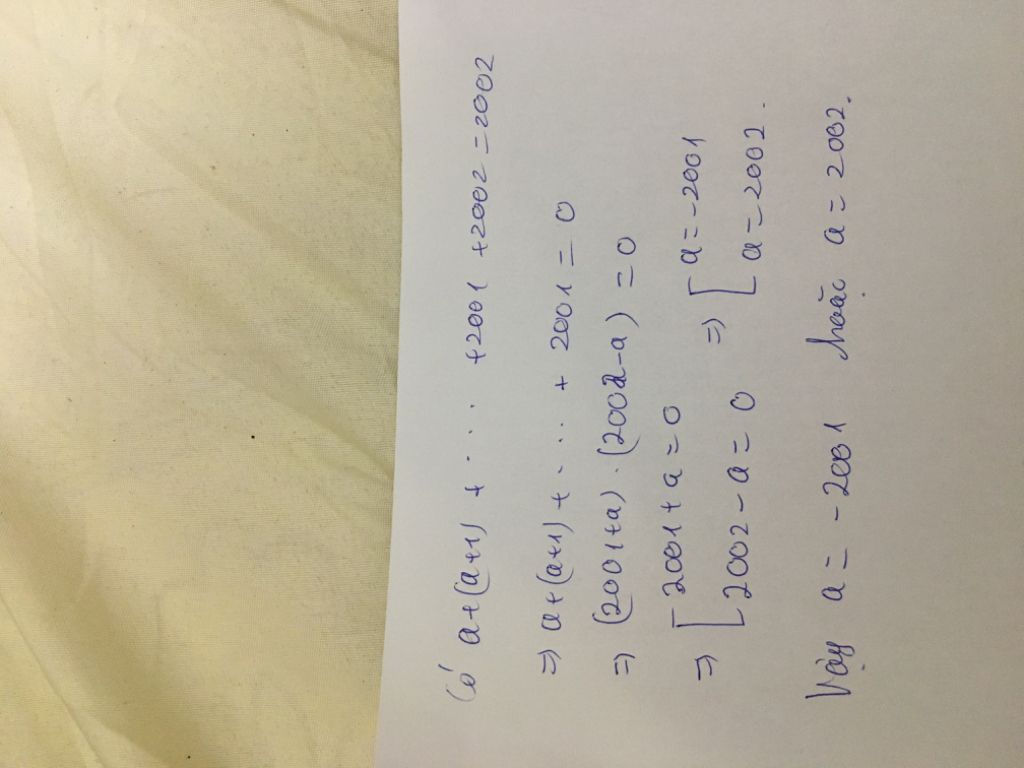 Có a+(a+1) + ... +2001 +2002 = 2002
=) a+(a+1) + ... + 2001 = 0
=) (2001+a) . (2002-a) = 0
=) [ 2001 + a = 0 =) [ a = -2001
2002 - a = 0 a = 2002.
Vậy a = -2001 hoặc a = 2002.